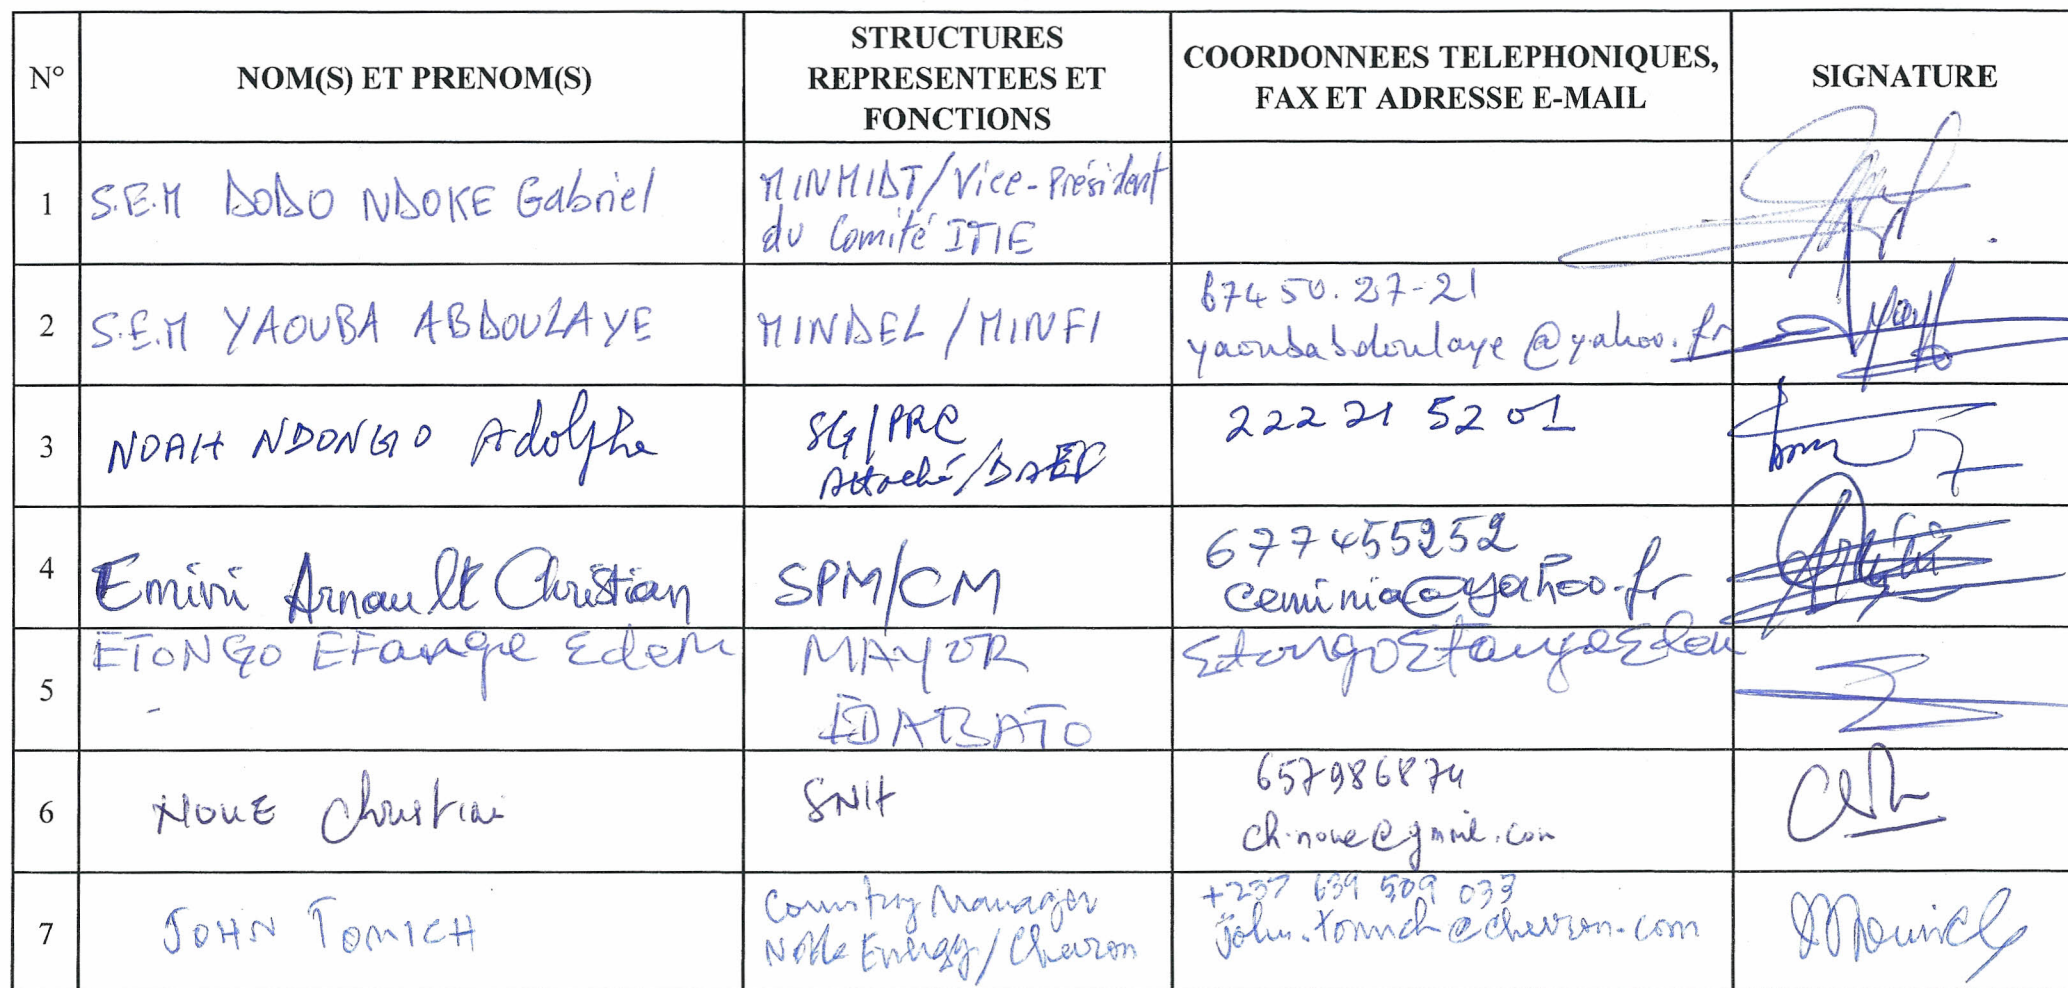 N° NOM(S) ET PRENOM(S) STRUCTURES REPRESENTEES ET FONCTIONS COORDONNEES TELEPHONIQUES, FAX ET ADRESSE E-MAIL SIGNATURE
1 S.E.M DODO NDOKE Gabriel MINMIDT/Vice-Président
du Comité ITIE
2 S.E.M YAOUBA ABDOULAYE MINDEL/MINFI 67450.27-21
yaoubabdoulaye@yahoo.fr
3 NOAH NDONGO Adolphe SG/PRC 222 21 52 01
Attaché/DAEC
4 Emini Arnault Christian SPM/CM 677455252
ceminia@yahoo.fr
5 ETONGO EFange Edem MAYOR
IDABATO
6 NOUE Christine SNH 657986874
ch.noue@gmail.com
7 JOHN TOMICH Country Manager +237 639 509 033
Noble Energy/Chevron john.tomich@chevron.com